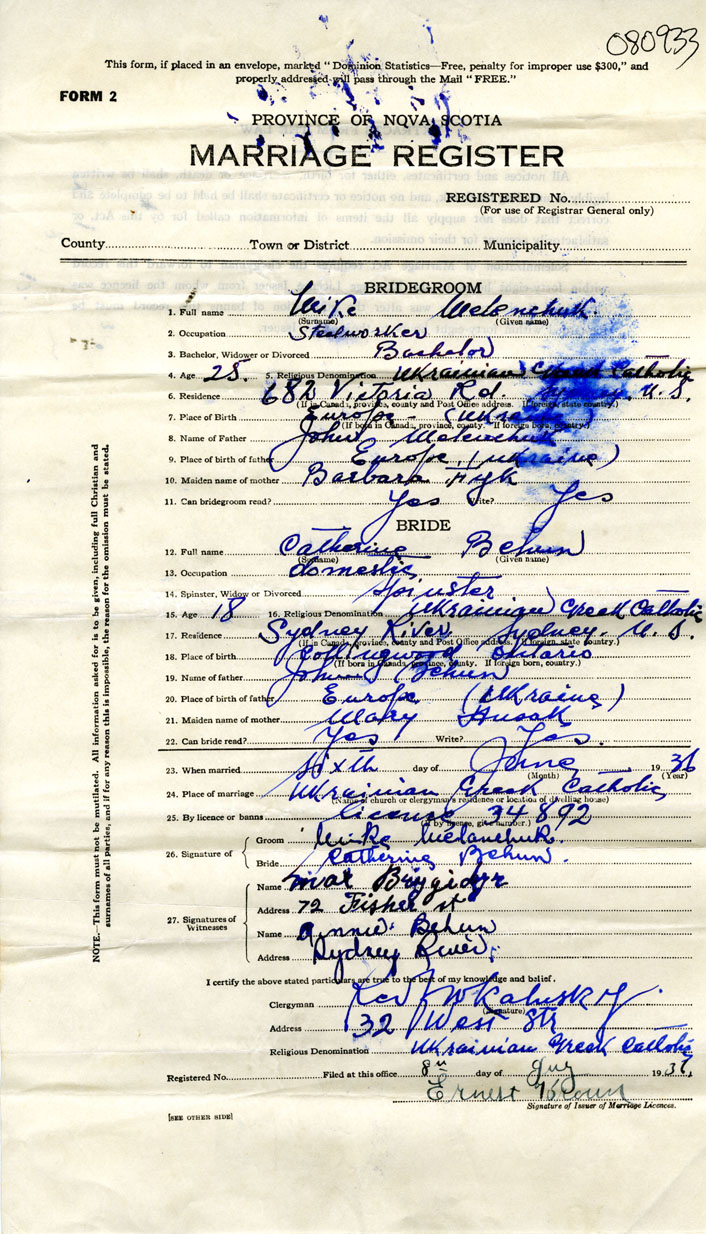 080933
This form, if placed in an envelope, marked "Dominion Statistics—Free, penalty for improper use $300," and
properly addressed will pass through the Mail "FREE."
FORM 2
PROVINCE OF NOVA SCOTIA
MARRIAGE REGISTER
REGISTERED No.
(For use of Registrar General only)
County Town or District Municipality
BRIDEGROOM
1. Full name Mike Melenchuk.
(Surname) (Given name)
2. Occupation Steelworker
3. Bachelor, Widower or Divorced Bachelor
4. Age 25. 5. Religious Denomination Ukrainian Greek Catholic
6. Residence 682 Victoria Rd. N. S.
(If in Canada, province, county and Post Office address. If foreign, state country.)
7. Place of Birth Europe - (Ukraine)
(If born in Canada, province, county. If foreign born, country.)
8. Name of Father John Melenchuk
9. Place of birth of father Europe (Ukraine)
10. Maiden name of mother Barbara Hyk
11. Can bridegroom read? Yes Write? Yes
BRIDE
12. Full name Catherine Behun
(Surname) (Given name)
13. Occupation domestic
14. Spinster, Widow or Divorced Spinster
15. Age 18 16. Religious Denomination Ukrainian Greek Catholic
17. Residence Sydney River, Sydney, N. S.
(If in Canada, province, county and Post Office address. If foreign, state country.)
18. Place of birth Collingwood Ontario
(If born in Canada, province, county. If foreign born, country.)
19. Name of father John (Behun
20. Place of birth of father Europe (Ukraine)
21. Maiden name of mother Mary Husak
22. Can bride read? Yes Write? Yes.
23. When married Sixth day of June 1936
(Month) (Year)
24. Place of marriage Ukrainian Greek Catholic
(Name of church or clergyman's residence or location of dwelling house)
25. By licence or banns license 34892
(If by license, give number.)
26. Signature of Groom Mike Melanchuk.
Bride Catherine Behun.
27. Signatures of Witnesses
Name
Address 72 Fisher st
Name Annie Behun
Address Sydney River,
I certify the above stated particulars are true to the best of my knowledge and belief.
Clergyman Rev
(Signature)
Address 32 West Str
Religious Denomination Ukrainian Greek Catholic
Registered No. Filed at this office 8th day of 193
Ernest
Signature of Issuer of Marriage Licences.
[SEE OTHER SIDE]
NOTE.—This form must not be mutilated. All information asked for is to be given, including full Christian and
surnames of all parties, and if for any reason this is impossible, the reason for the omission must be stated.